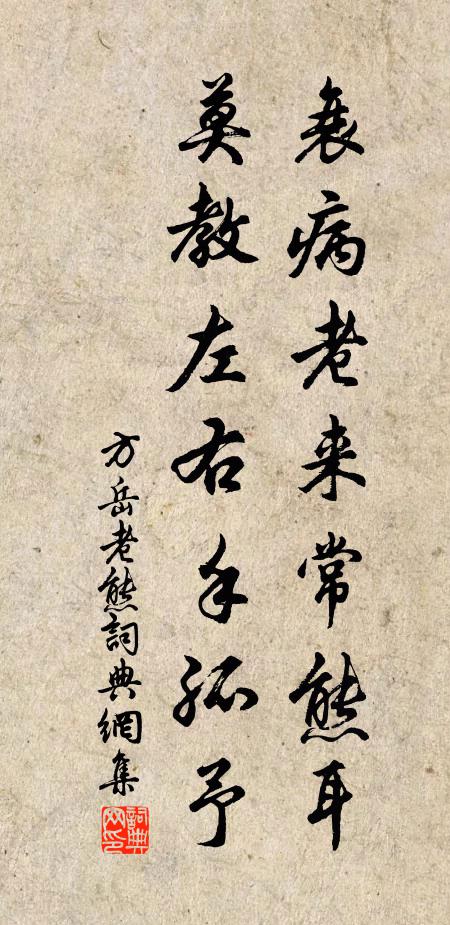 衰病老来常態耳
莫教左右手孤予
方岳老態詞典網集
詞典网印